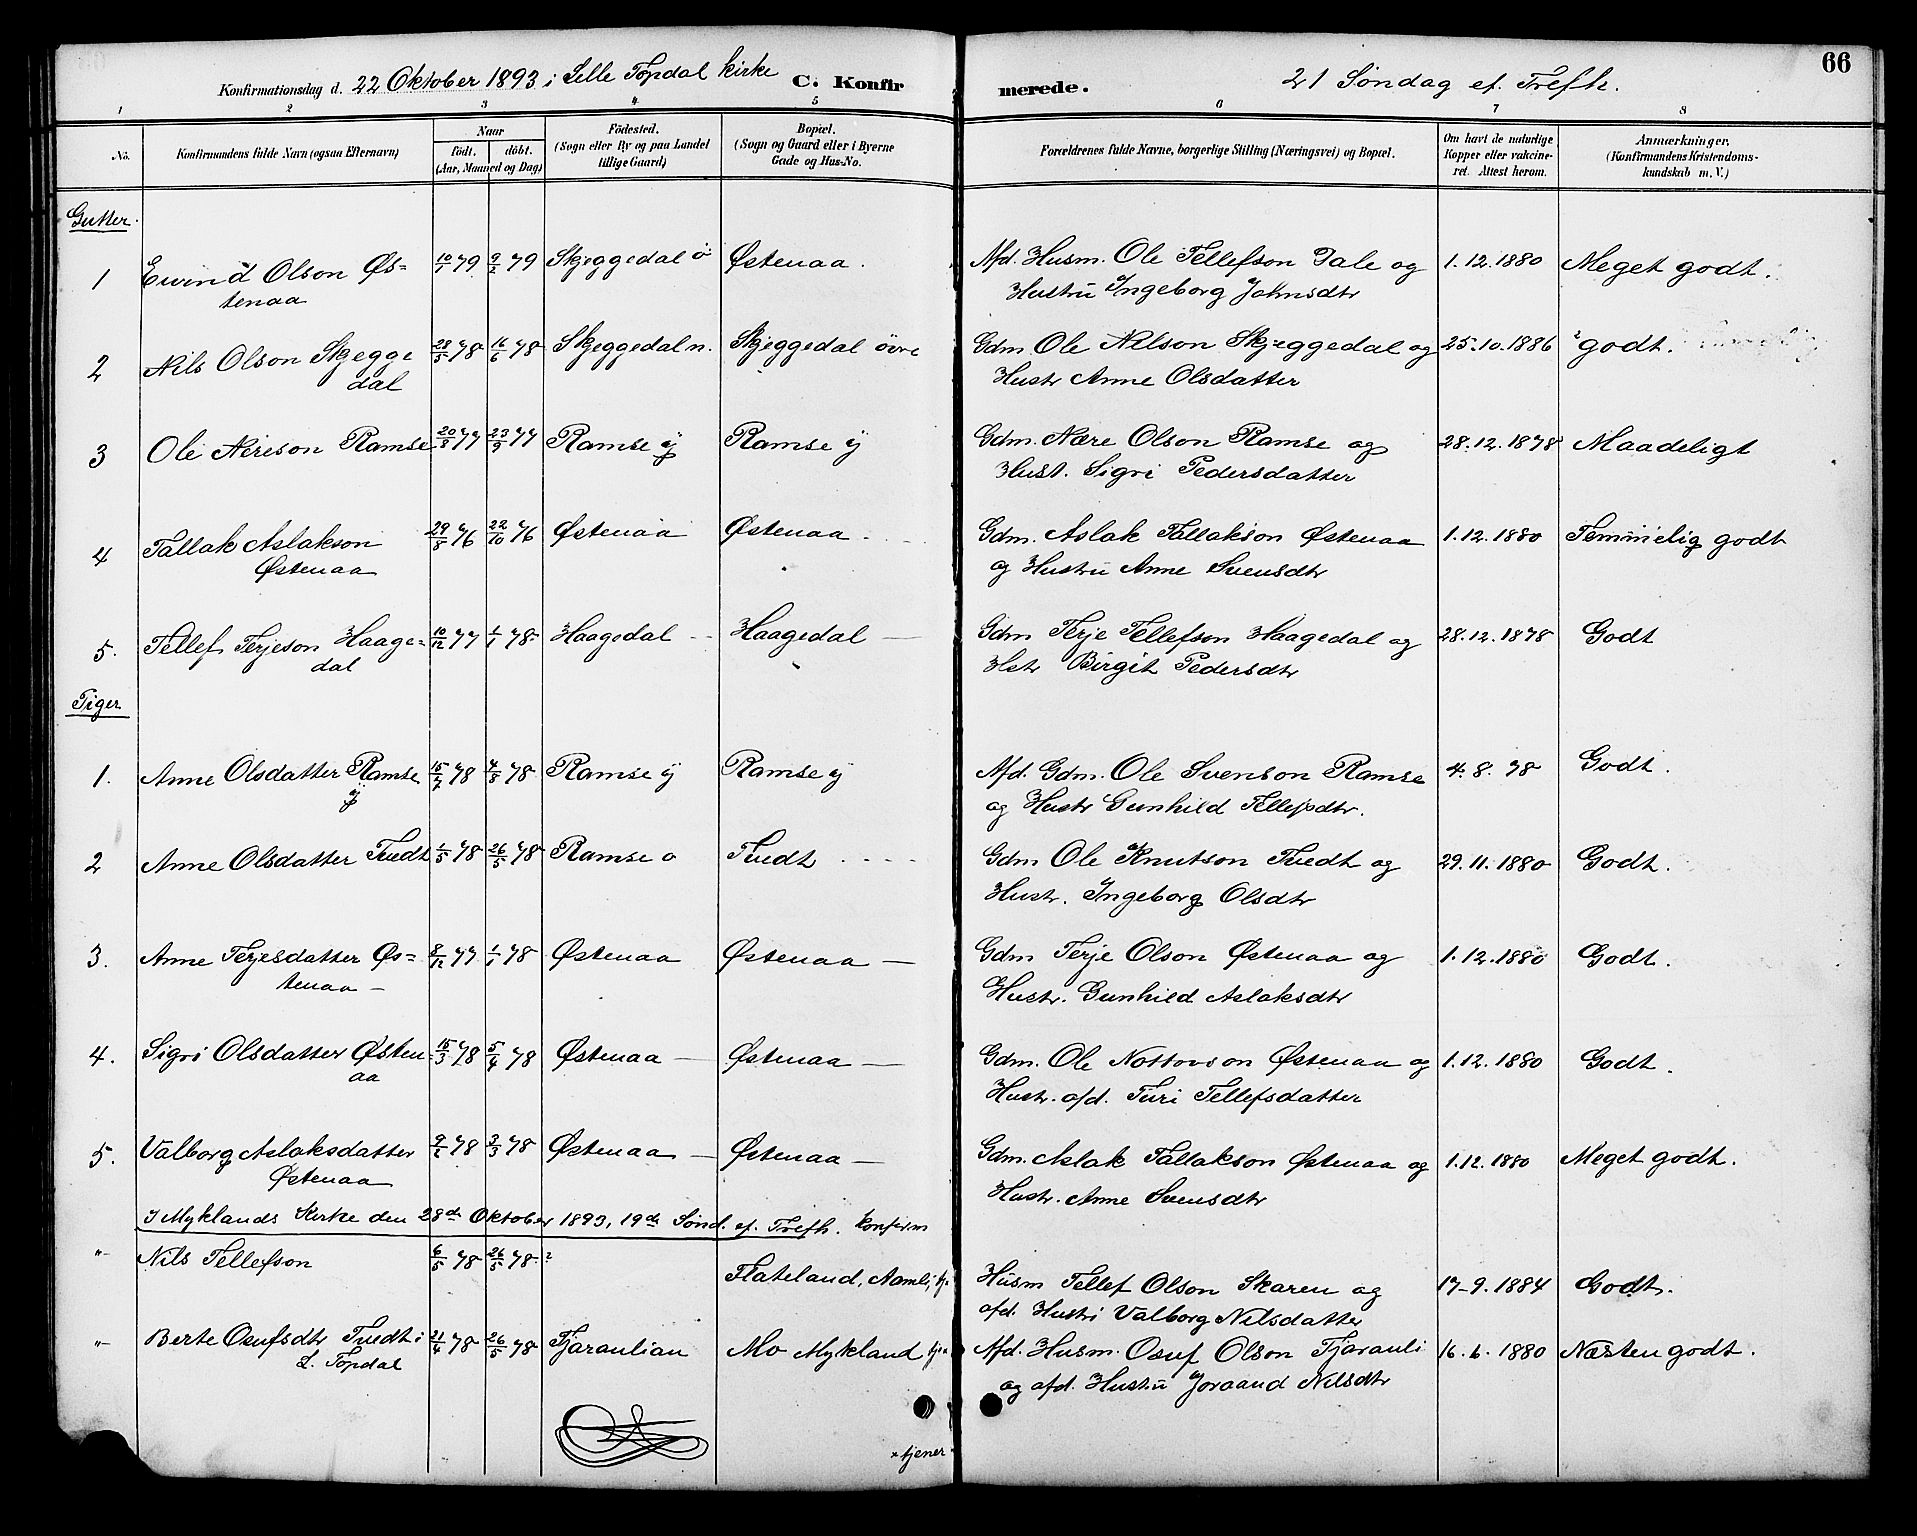 66
Konfirmationsdag d. 22 Oktober 1893 i Lille Topdal kirke C. Konfirmerede. 21 Søndag ef. Trefh.
1 2 3 4 5 6 7 8
No. Konfirmandens fulde Navn (ogsaa Efternavn) Naar födt. döbt. (Aar, Maaned og Dag) Födested. (Sogn eller By og paa Landet tillige Gaard) Bopæl. (Sogn og Gaard eller i Byerne Gade og Hus-No. Forældrenes fulde Navne, borgerlige Stilling (Næringsvei) og Bopæl. Om havt de naturlige Kopper eller vakcineret. Attest herom. Anmærkninger. (Konfirmandens Kristendomskundskab m. V.)
Gutter.
1 Eivind Olson Øs= 10/1 79 9/2 79 Skjeggedal ö Østenaa. Afd. Husm. Ole Tellefson Dale og 1.12.1880 Meget godt.
tenaa Hustru Ingeborg Johnsdtr
2 Nils Olson Skjegge 28/5 78 16/6 78 Skjeggedal n. Skjeggedal övre Gdm. Ole Nilson Skjeggedal og 25.10.1886 godt.
dal Hustr Anne Olsdatter
3 Ole Nerison Ramse 20/8 77 23/9 77 Ramse y Ramse y Gdm. Nære Olson Ramse og 28.12.1878 Maadeligt
Hust. Sigri Pedersdatter
4 Tallak Aslakson 29/8 76 22/10 76 Østenaa Østenaa Gdm. Aslak Tallakson Østenaa 1.12.1880 Temmelig godt
Østenaa og Hustru Anne Svensdtr
5. Tellef Terjeson Haage= 10/12 77 1/1 78 Haagedal Haagedal Gdm Terje Tellefson Haagedal og 28.12.1878 Godt
dal Hstr Birgit Pedersdtr
Piger
1. Anne Olsdatter Ramse 15/7 78 4/8 78 Ramse y Ramse y Afd. Gdm. Ole Svenson Ramse 4.8.78 Godt.
y og Hustr Gunhild Tellefsdtr.
2 Anne Olsdatter Tvedt 1/5 78 26/5 78 Ramse o Tvedt Gdm Ole Knutson Tvedt og 29.11.1880 Godt.
Hustr. Ingeborg Olsdtr
3. Anne Terjesdatter Øs= 8/12 77 1/1 78 Østenaa Østenaa Gdm Terje Olson Østenaa og 1.12.1880 Godt.
tenaa Hustr. Gunhild Aslaksdtr
4. Sigri Olsdatter Østen 15/3 78 5/4 78 Østenaa Østenaa Gdm. Ole Nottovson Østenaa og 1.12.1880 Godt.
aa Hustr. afd. Turi Tellefsdatter
5. Valborg Aslaksdatter 9/2 78 3/3 78 Østenaa Østenaa Gdm. Aslak Tallakson Østenaa og 1.12.1880 Meget godt.
Østenaa Hustr. Anne Svensdtr
I Myklands Kirke den 28de Oktober 1893, 19de Sönd. ef. Trefh. Konfirm
" Nils Tellefson 6/5 78 26/5 78 ? Flateland, Aamli, tj. Husm Tellef Olson Skaren og 17-9.1884 Godt.
afd. Hustru Valborg Nilsdatter
" Berte Osufsdtr Tvedt i 21/4 78 26/5 78 Tjaraulian Mo Mykland tjen Afd. Husm. Osuf Olson Tjarauli 16.6.1880 Næsten godt.
L. Topdal og afd. Hustru Joraand Nilsdtr
× tjener